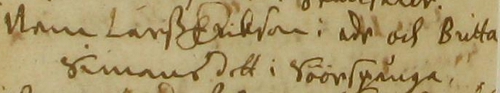 Larß Erikson i och Britta
Simans dtt i Söörspånga.